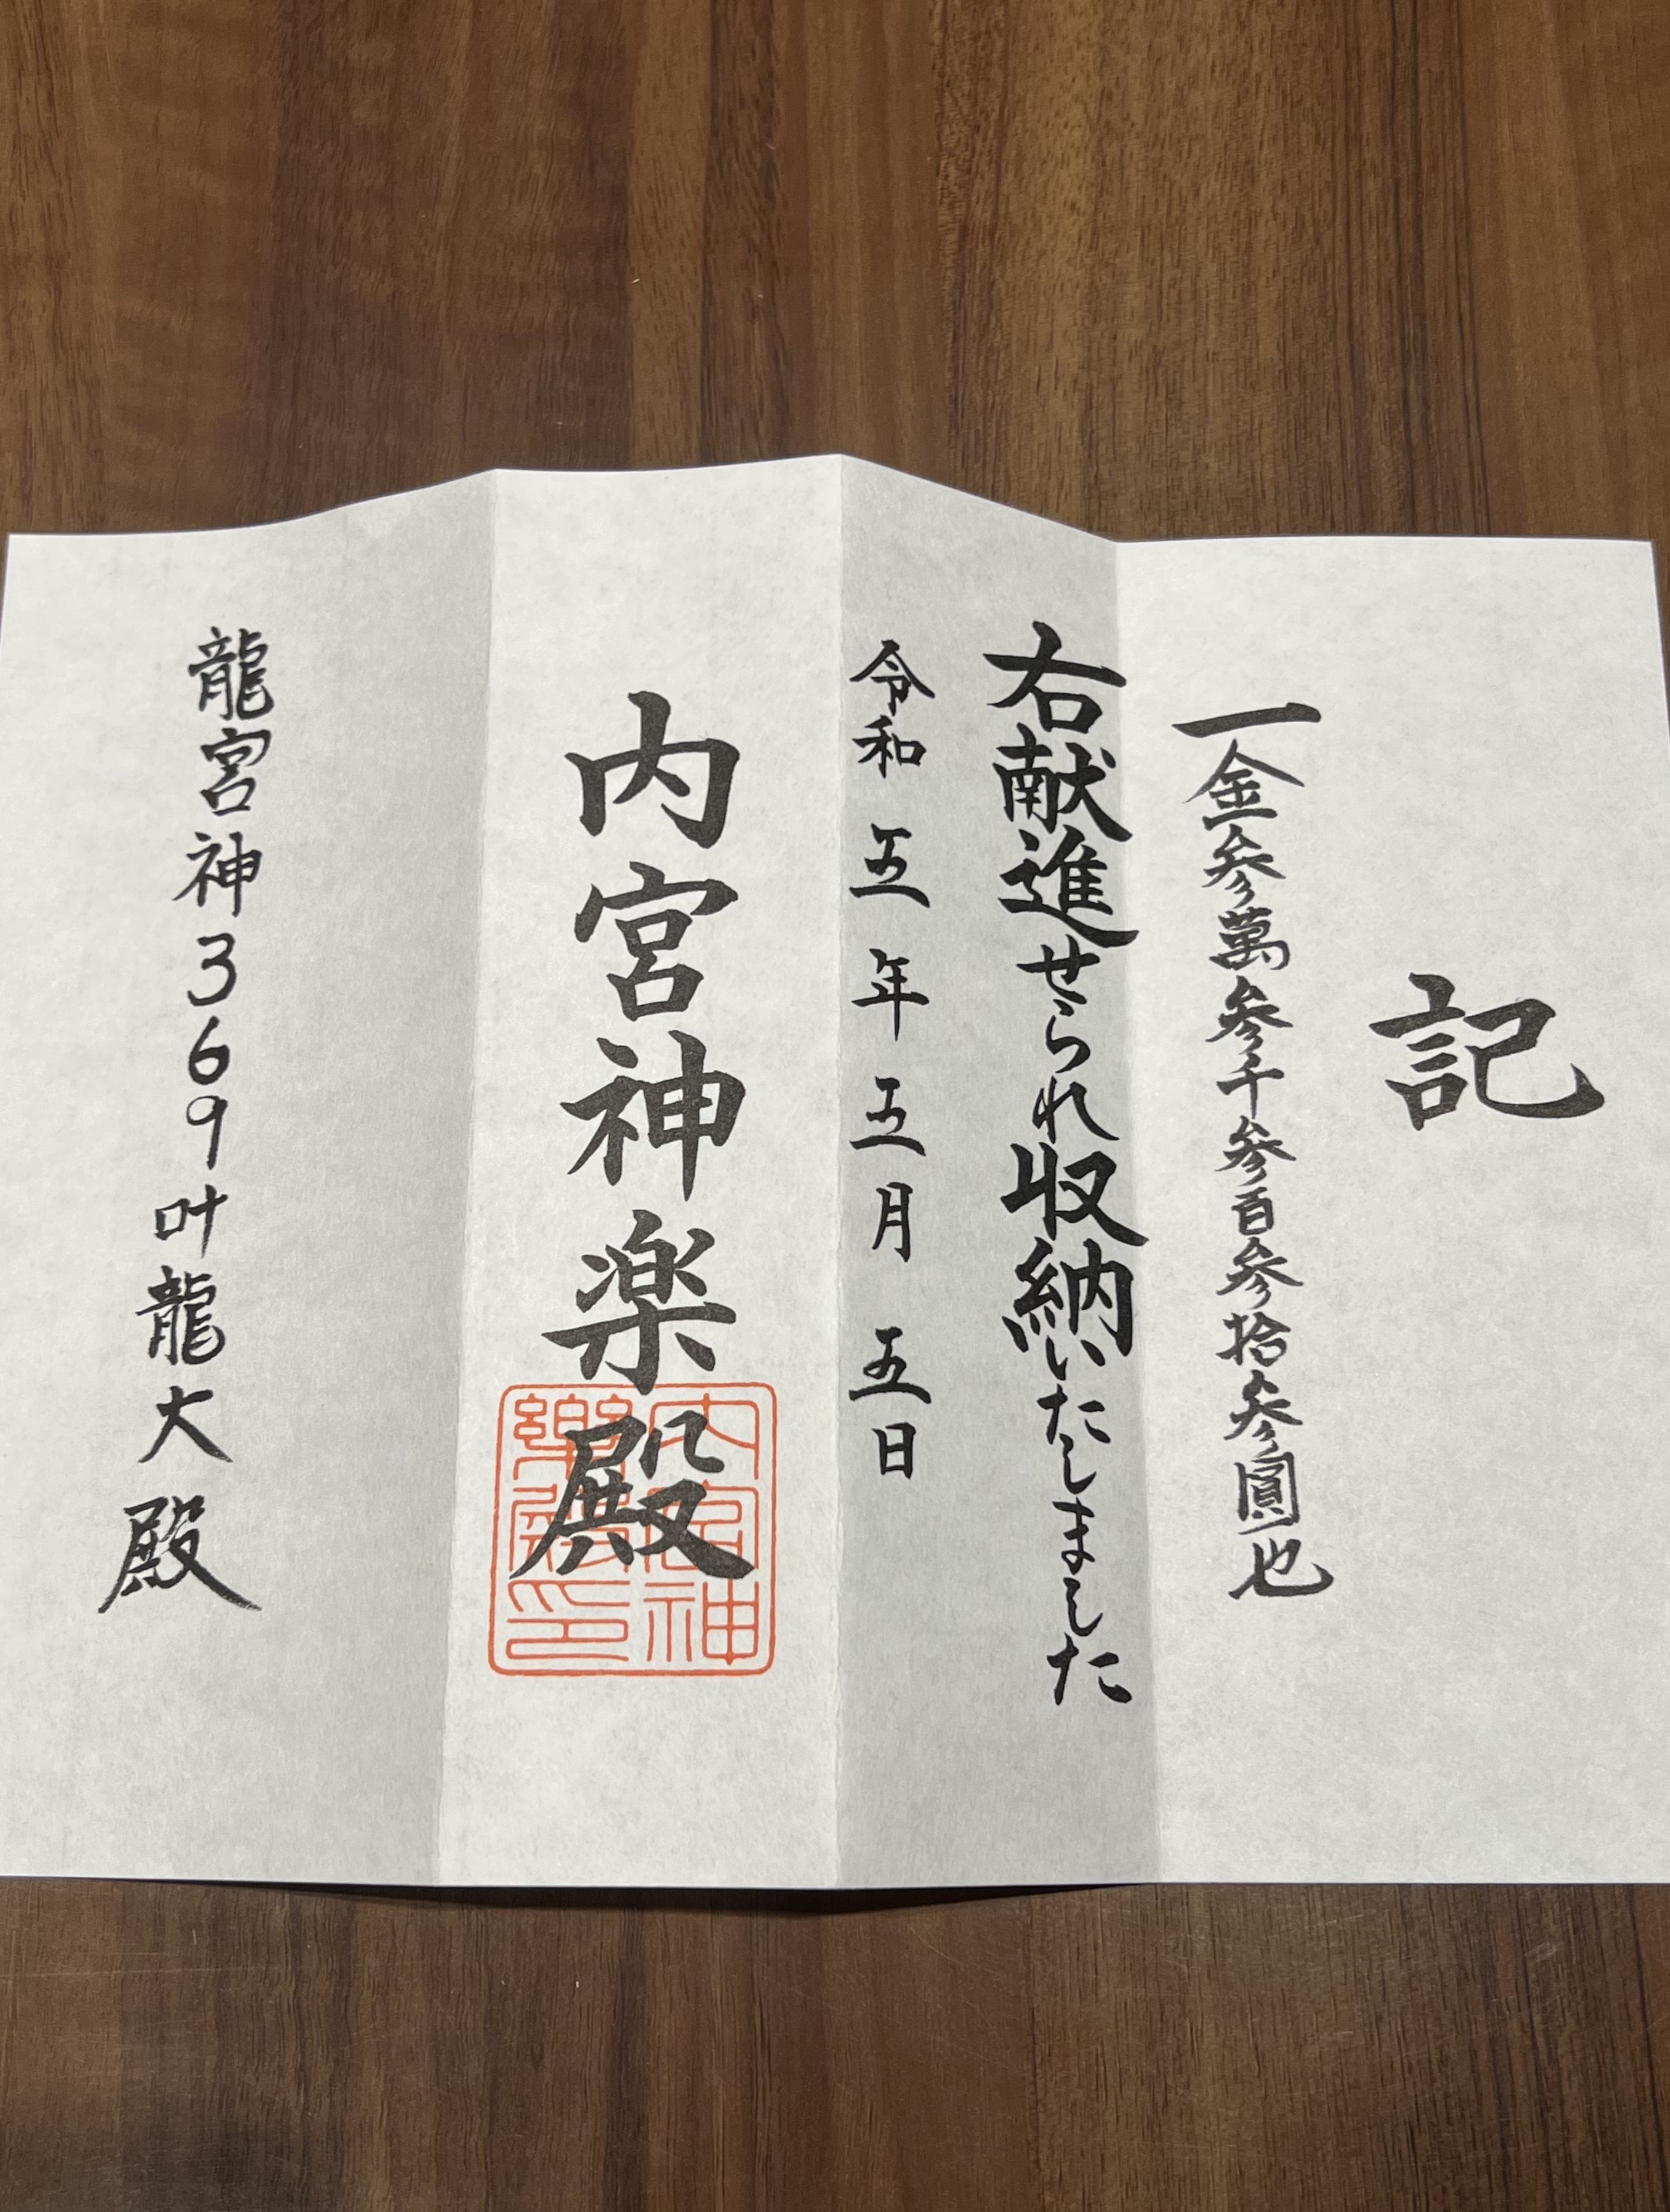 記
一金参萬参千参百参拾参圓也
右献進せられ収納いたしました
令和五年五月五日
内宮神楽殿
内宮神楽殿印
龍宮神369叶龍大殿